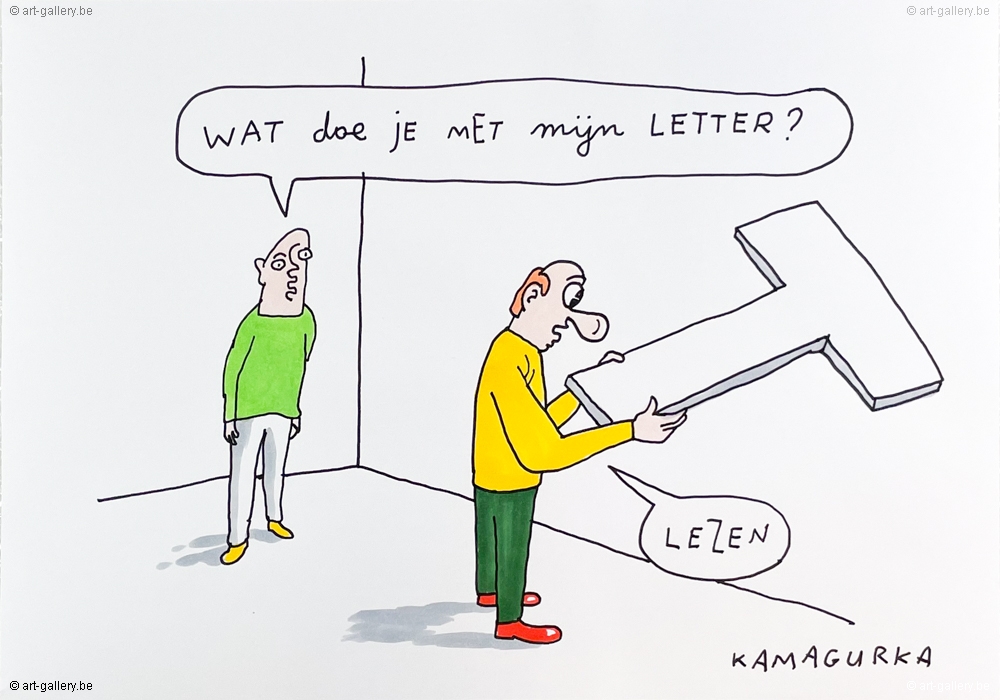 © art-gallery.be
© art-gallery.be
WAT doe JE MET mijn LETTER?
T
LEZEN
KAMAGURKA
© art-gallery.be
© art-gallery.be